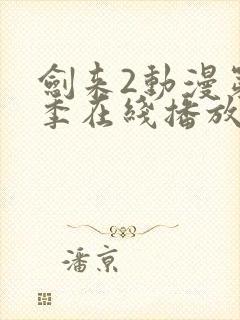 劍来2動漫第
季在綫播放
潘京